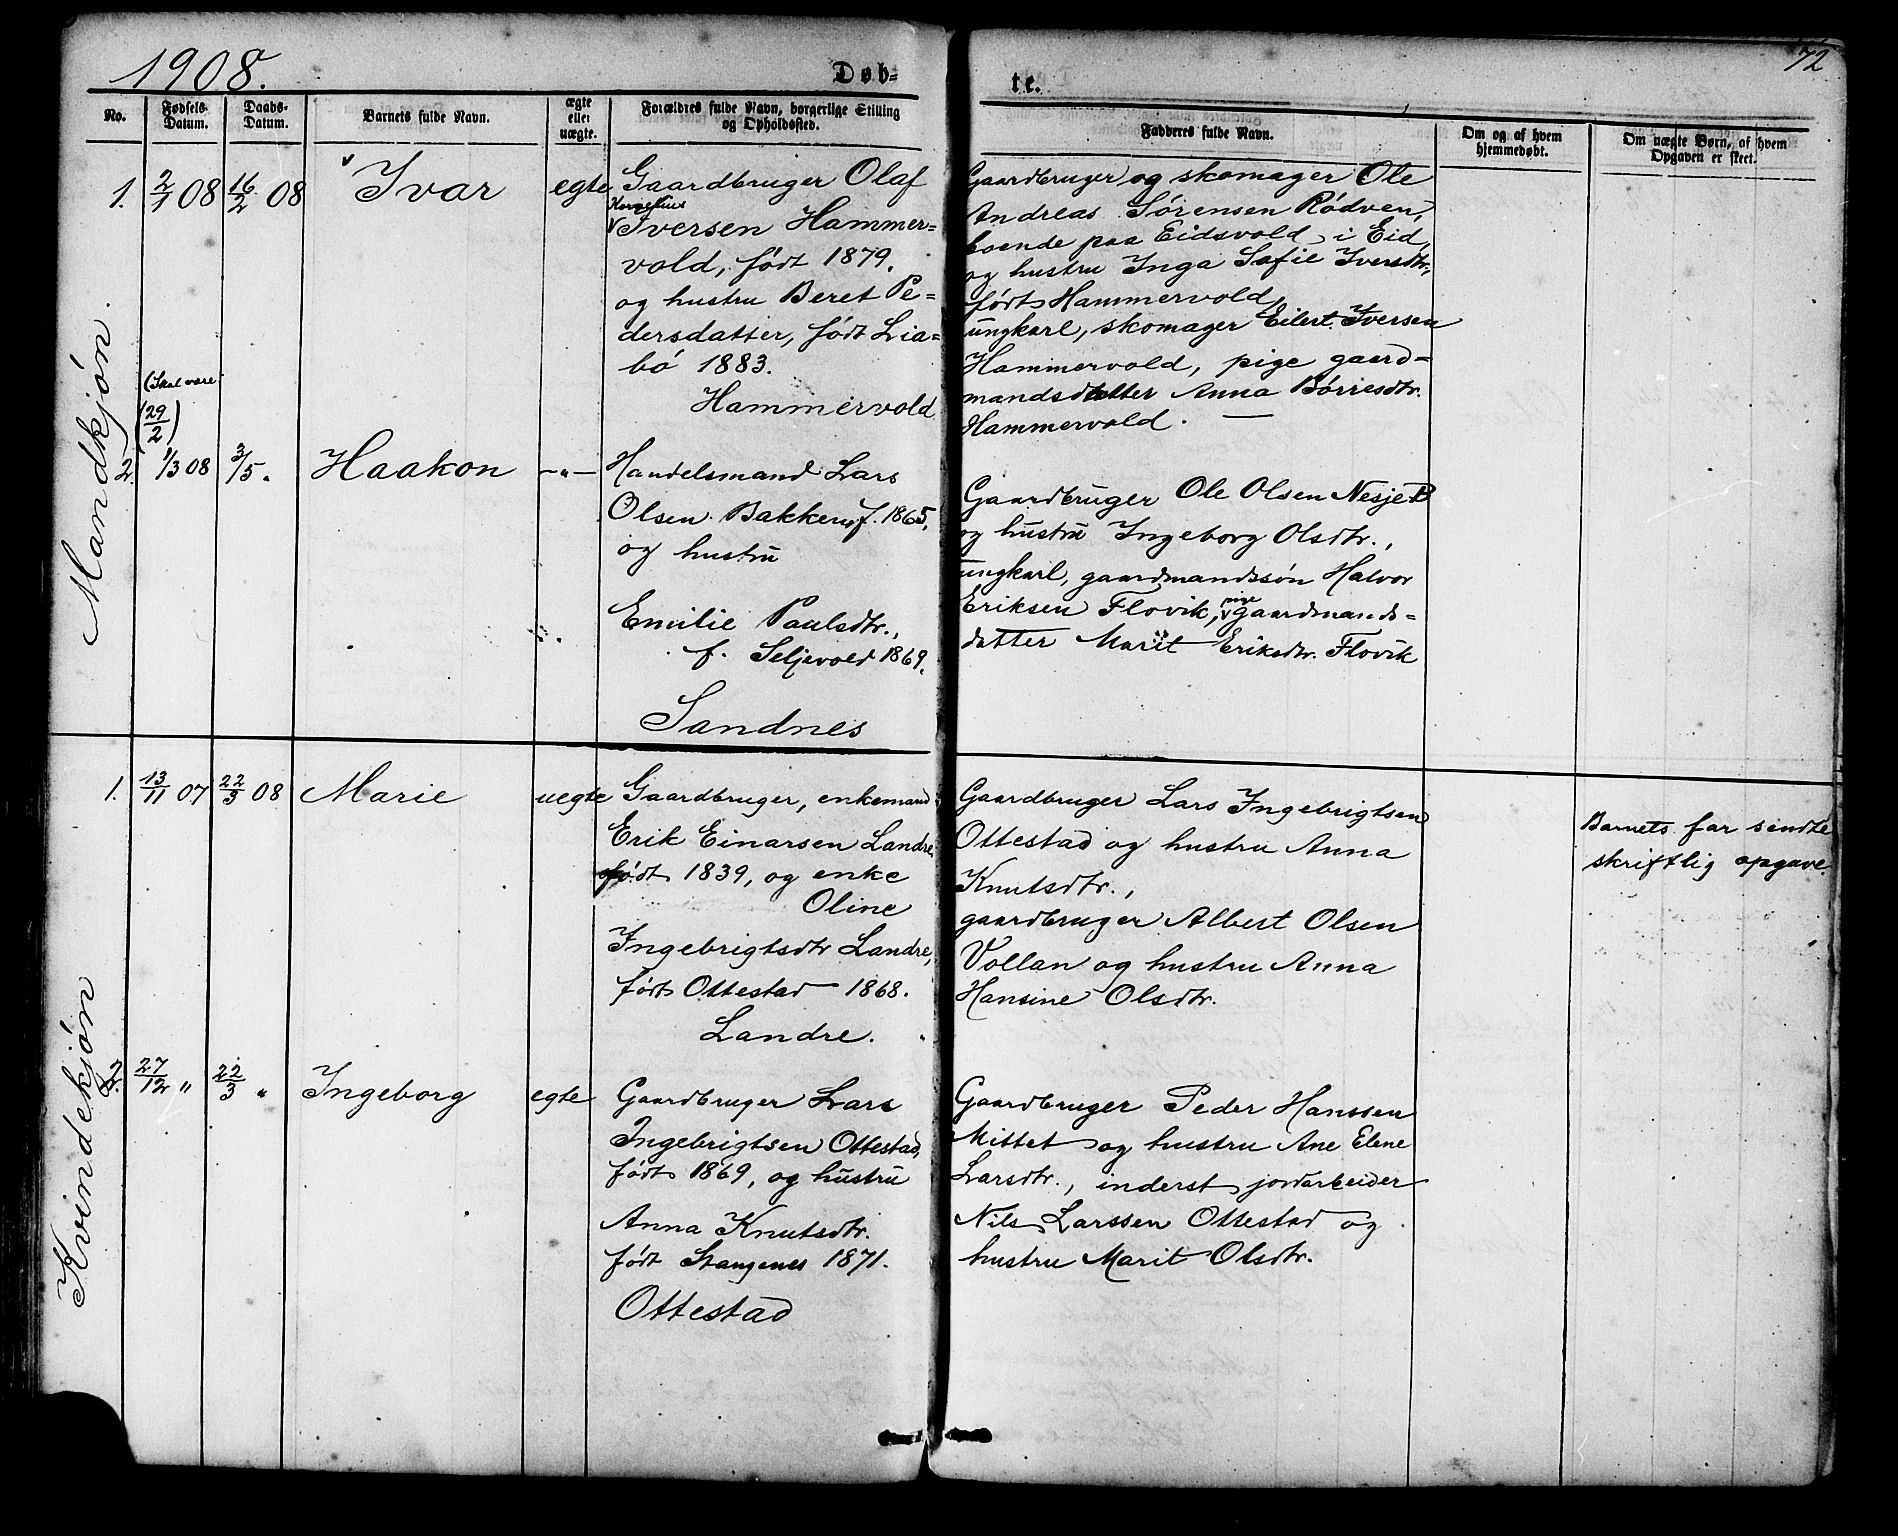 1908.
Døb-
te.
72
No.
Fødsels-
Datum.
Daabs-
Datum.
Barnets fulde Navn.
ægte
eller
uægte.
Forældres fulde Navn, borgerlige Stilling
og Opholdssted.
Fadderes fulde Navn.
Om og af hvem
hjemmedøbt.
Om uægte Børn, af hvem
Opgaven er skeet.
Mandkjøn.
1.
2/1 08
16/2 08
Ivar
egte
Gaardbruger Olaf
Iversen Hammer=
vold, født 1879,
og hustru Beret Pe=
dersdatter, født Lia=
bø 1883.
Hammervold
Gaardbruger og skomager Ole
Andreas Sørensen Rødven,
boende paa Eidsvold i Eid,
og hustru Inga Sofie Iversdtr,
født Hammervold,
ungkarl, skomager Eilert Iversen
Hammervold, pige gaard=
mandsdatter Anna Børresdtr.
Hammervold. —
(Skal være
29/2)
2.
1/3 08
3/5 "
Haakon
—"—
Handelsmand Lars
Olsen Bakken, f. 1865,
og hustru
Emilie Paulsdtr.,
f. Seljevold 1869.
Sandnes
Gaardbruger Ole Olsen Nesje
og hustru Ingeborg Olsdtr.,
ungkarl, gaardmandssøn Halvor
Eriksen Flovik, pige gaardmands-
datter Marit Eriksdtr. Flovik
Kvindekjøn
1.
13/11 07
22/3 08
Marie
uegte
Gaardbruger, enkemand
Erik Einarsen Landre,
født 1839, og enke
Oline
Ingebrigtsdtr Landre,
født Ottestad 1868.
Landre.
Gaardbruger Lars Ingebrigtsen
Ottestad og hustru Anna
Knutsdtr.,
gaardbruger Albert Olsen
Vollan og hustru Anna
Hansine Olsdtr.
Barnets far sendte
skriftlig opgave.
2.
27/12 "
22/3 "
Ingeborg
egte
Gaardbruger Lars
Ingebrigtsen Ottestad,
født 1869, og hustru
Anna Knutsdtr.
født Stangenes 1871.
Ottestad
Gaardbruger Peder Hanssen
Mittet og hustru Ane Elene
Larsdtr., inderst jordarbeider
Nils Larssen Ottestad og
hustru Marit Olsdtr.